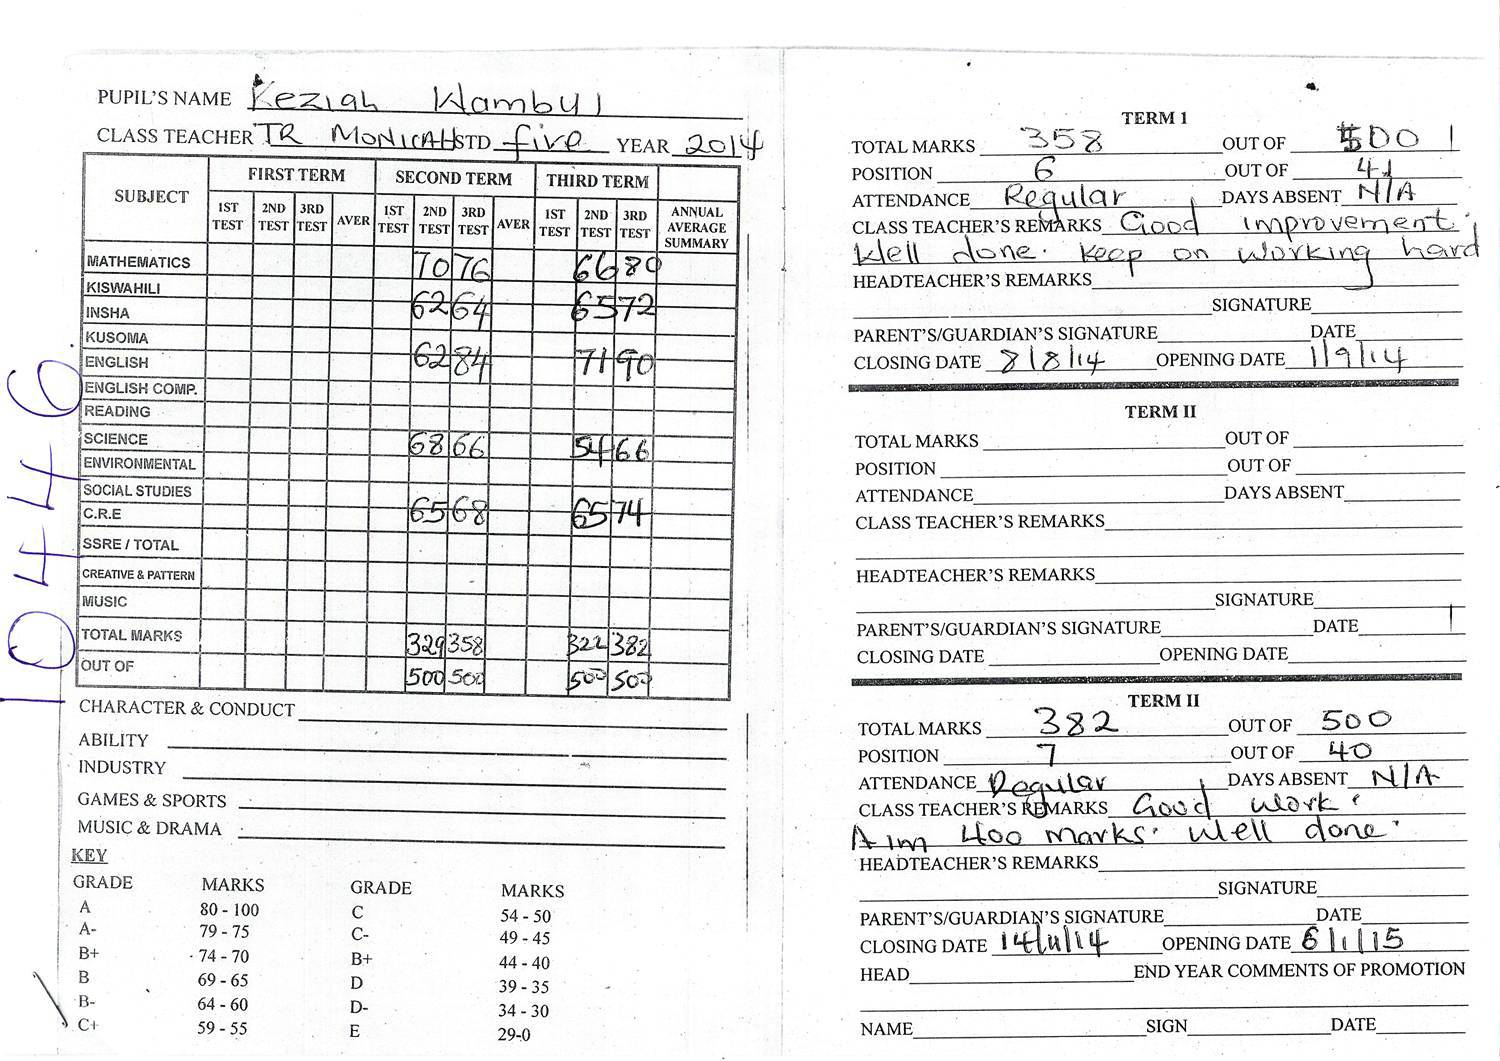 PUPIL'S NAME Keziah Wambui
CLASS TEACHER TR MONICAH STD five YEAR 2014
SUBJECT FIRST TERM SECOND TERM THIRD TERM
1ST TEST 2ND TEST 3RD TEST AVER 1ST TEST 2ND TEST 3RD TEST AVER 1ST TEST 2ND TEST 3RD TEST ANNUAL AVERAGE SUMMARY
MATHEMATICS 70 76 66 80
KISWAHILI
INSHA 62 64 65 72
KUSOMA
ENGLISH 62 84 71 90
ENGLISH COMP.
READING
SCIENCE 68 66 54 66
ENVIRONMENTAL
SOCIAL STUDIES
C.R.E 65 68 65 74
SSRE / TOTAL
CREATIVE & PATTERN
MUSIC
TOTAL MARKS 329 358 322 382
OUT OF 500 500 500 500
CHARACTER & CONDUCT
ABILITY
INDUSTRY
GAMES & SPORTS
MUSIC & DRAMA
KEY
GRADE MARKS GRADE MARKS
A 80 - 100 C 54 - 50
A- 79 - 75 C- 49 - 45
B+ 74 - 70 B+ 44 - 40
B 69 - 65 D 39 - 35
B- 64 - 60 D- 34 - 30
C+ 59 - 55 E 29-0
10446
TERM 1
TOTAL MARKS 358 OUT OF 500
POSITION 6 OUT OF 41
ATTENDANCE Regular DAYS ABSENT N/A
CLASS TEACHER'S REMARKS Good improvement
Well done. Keep on working hard
HEADTEACHER'S REMARKS
SIGNATURE
PARENT'S/GUARDIAN'S SIGNATURE DATE
CLOSING DATE 8/8/14 OPENING DATE 1/9/14
TERM II
TOTAL MARKS OUT OF
POSITION OUT OF
ATTENDANCE DAYS ABSENT
CLASS TEACHER'S REMARKS
HEADTEACHER'S REMARKS
SIGNATURE
PARENT'S/GUARDIAN'S SIGNATURE DATE
CLOSING DATE OPENING DATE
TERM II
TOTAL MARKS 382 OUT OF 500
POSITION 7 OUT OF 40
ATTENDANCE Regular DAYS ABSENT N/A
CLASS TEACHER'S REMARKS Good work.
Aim 400 marks. Well done.
HEADTEACHER'S REMARKS
SIGNATURE
PARENT'S/GUARDIAN'S SIGNATURE DATE
CLOSING DATE 14/11/14 OPENING DATE 6/1/15
HEAD END YEAR COMMENTS OF PROMOTION
NAME SIGN DATE